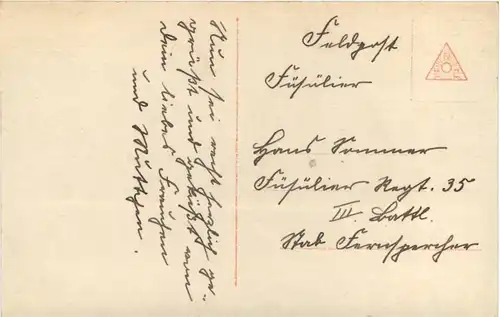 Nun sei recht herzlich ge-
grüßt und geküßt von
dein liebes Frauchen
und Mutchen.
Feldpost
Füsilier
Hans Sommer
Füsilier Regt. 35
III. Battl.
Stab Fernspercher